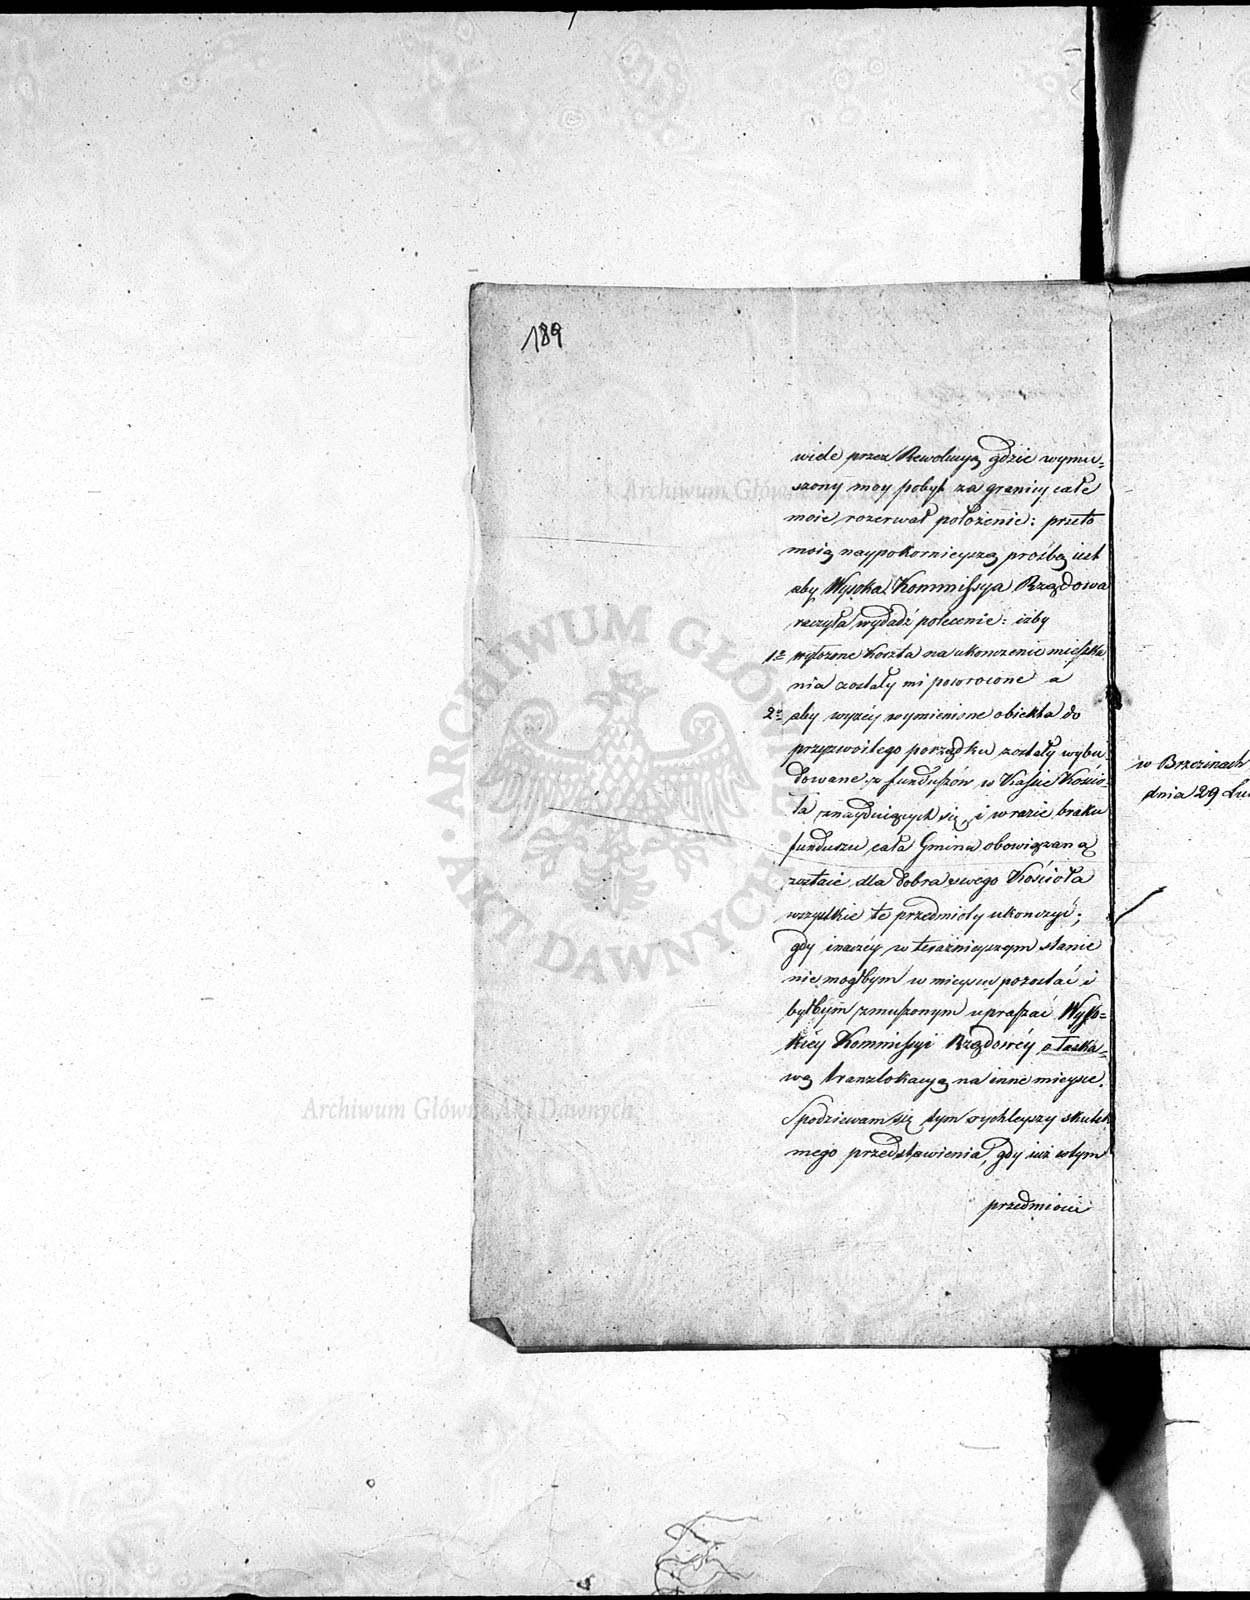 189
wiele przez Rewolucyą gdzie wymu=
szony moy pobyt za granicy całe
moie rozerwał położenie: przeto
moią naypokornieyszą prośbą iest
aby Wysoka Kommissya Rządowa
raczyła wydadź polecenie: iżby
1e wyłożone Koszta na ukonczenie mieszka
nia zostały mi powrocone a
2e aby wyzéy wymienione obiekta do
przyzwoitego porządku zostały wybu
dowane z funduszów w Kassie Kościo-
ła znayduiących się, i w razie braku
funduszu cała Gmina obowiązaną
zostaie dla dobra swego Kościoła
wszystkie te przedmioty ukonczyć;
gdy inaczéy w teraźnieyszym stanie
nie mogłbym w mieyscu pozostać i
byłbym zmuszonym upraszać Wyso=
kiéy Kommissyi Rządowéy o łaska=
wą tranzlokacyą na inne mieysce.
Spodziewam się tym rychleyszy skutek
mego przedstawienia, gdy iuż w tym
przedmiocie
w Brzezinach
dnia 29 Lu
ARCHIWUM GŁÓWNE AKT DAWNYCH
Archiwum Główne Akt Dawnych
Archiwum Główne Akt Dawnych